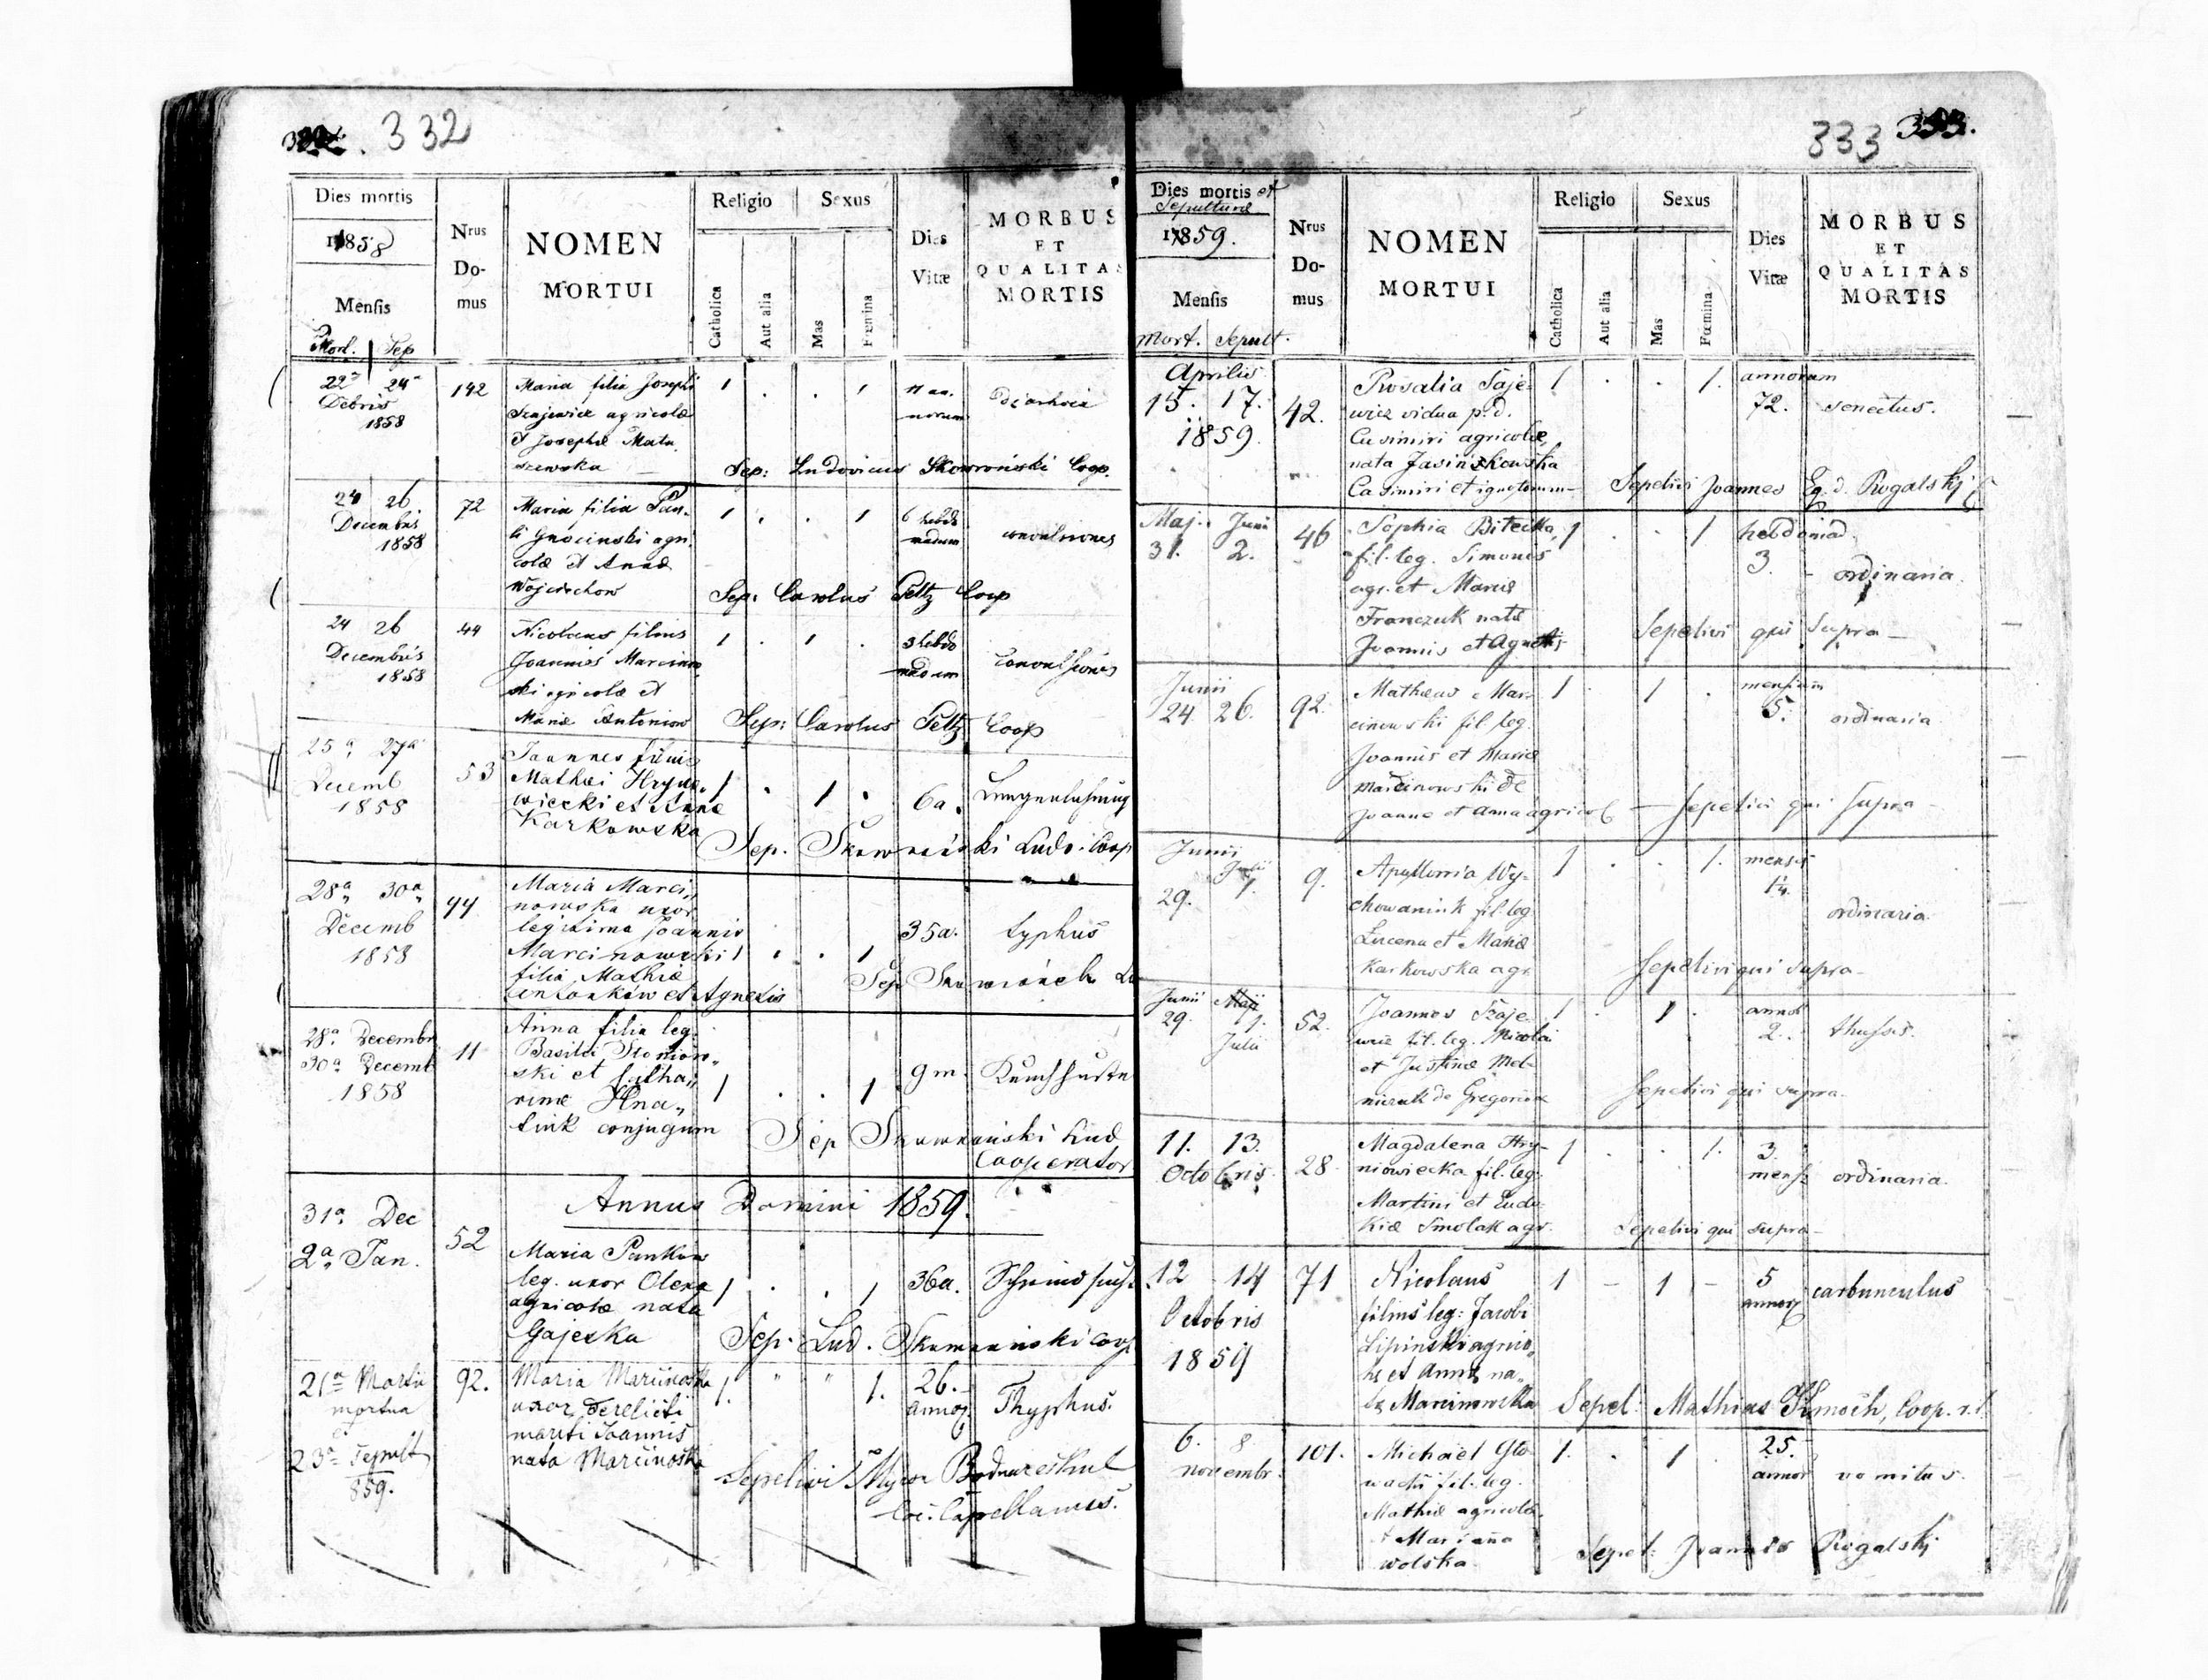 332
Dies mortis
1858
Mensis
Mort. Sep
Nrus
Do-
mus
NOMEN
MORTUI
Religio
Catholica
Aut alia
Sexus
Mas
Fœmina
Dies
Vitæ
MORBUS
ET
QUALITAS
MORTIS
22a 24a
Debris
1858
142
Maria filia Josephi
Szajewicz agricolæ
et Josephæ Matu
szewska
1 . . 1
11 an.
norum
Diarhoea
Sep: Ludovicus Skowroński Coop.
24 26
Decembris
1858
72
Maria filia Pau-
li Gnocinski agri
colæ et Annæ
Wojciechow
1 . . 1
6 hebdo
madum
convulsiones
Sep: Carolus Peltz Coop
24 26
Decembris
1858
44
Nicolaus filius
Joannis Marcinow
ski agricolæ et
Mariæ Antoniow
1 . 1 .
3 hebdo
madum
convulsiones
Sep: Carolus Peltz Coop
25a 27a
Decemb
1858
53
Joannes filius
Mathæi Hryne,,
wiecki et Annæ
Karkowska
1 . 1 .
6a.
Sep. Skowroński Ludo. Coop
28a 30a
Decemb
1858
44
Maria Marci,,
nowska uxor
legitima Joannis
Marcinowski
filia Mathiæ
et Agnetis
1 . . 1
35a.
typhus
Sep
28a Decembr
30a Decemb
1858
11
Anna filia leg.
Basilii
ski et Catha,,
rinæ Hna,,
tiuk conjugum
1 . . 1
9 m.
Sep Skowroński Lud
Cooperator
Annus Domini 1859.
31a Dec
2a Jan.
52
Maria Pankow
leg. uxor Olexa
agricolæ nata
Gajecka
1 . . 1
36a.
Sep. Lud. Skowronski Coop.
21a Martii
mortua
et
23a Sepult
859.
92.
Maria Marcinowska
uxor derelicti
mariti Joannis
nata Marcinowska
1. " " 1.
26.
annor.
Thyphus.
Sepelivi Myron
Loc. Capellanus.
333
Dies mortis et
Sepulturæ
1859.
Mensis
Mort. Sepult.
Nrus
Do-
mus
NOMEN
MORTUI
Religio
Catholica
Aut alia
Sexus
Mas
Fœmina
Dies
Vitæ
MORBUS
ET
QUALITAS
MORTIS
Aprilis
15. 17.
1859.
42.
Rosalia Saje-
wicz vidua p. d.
Casimiri agricolæ,
nata Jasińskowska
Casimiri et ignotorum
1 . . 1.
annorum
72.
senectus.
Sepelivi Joannes Eq. d. Rogalskj
Maj. Junii
31. 2.
46
Sophia Bitecka,
fil. leg. Simonis
agr. et Mariæ
Franczuk nata
Joannis et Agnetis
1 . . 1
hebdomad.
3.
ordinaria.
Sepelivi qui supra
Junii
24. 26.
92.
Mathæus Mar-
cinowski fil. leg.
Joannis et Mariæ
Marcinowski de
Joanne et Anna agricol
1 1 .
mensium
5.
ordinaria
Sepelivi qui supra
Junii
Julii
29. 1.
9.
Apollonia Wy-
chowaniuk fil. leg.
Lucena et Mariæ
Karkowska agr.
1 . . 1.
mensis
ordinaria.
Sepelivi qui supra
Junii
29. 1.
Julii
52.
Joannes Szaje-
wicz fil. leg. Nicolai
et Justinæ Mel-
niczuk de Gregorio
1 . 1 .
annor
2.
thussis.
Sepelivi qui supra.
11. 13.
Octobris
28
Magdalena Hry-
niowiecka fil. leg.
Martini et Eudo-
kiæ Smolak agr.
1 . . 1.
3.
mens.
ordinaria.
Sepelivi qui supra
12 - 14
Octobris
1859
71
Nicolaus
filius leg: Jacobi
Lipinski agrico,,
læ et Annæ na,,
tæ Marcinowska
1 - 1 -
5
annor.
carbunculus
Sepel: Mathias Coop. r. l.
6. 8
novembr.
101.
Michael Glo-
wacki fil. leg.
Mathiæ agricolæ.
et Marianna
Wolska.
1. . 1 .
25.
annor
vomitus.
Sepel: Joannes Rogalskj